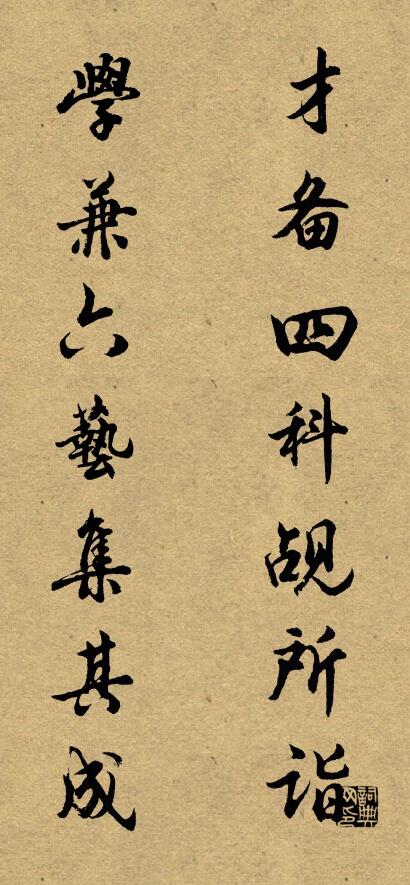 才备四科觇所诣
學兼六藝集其成